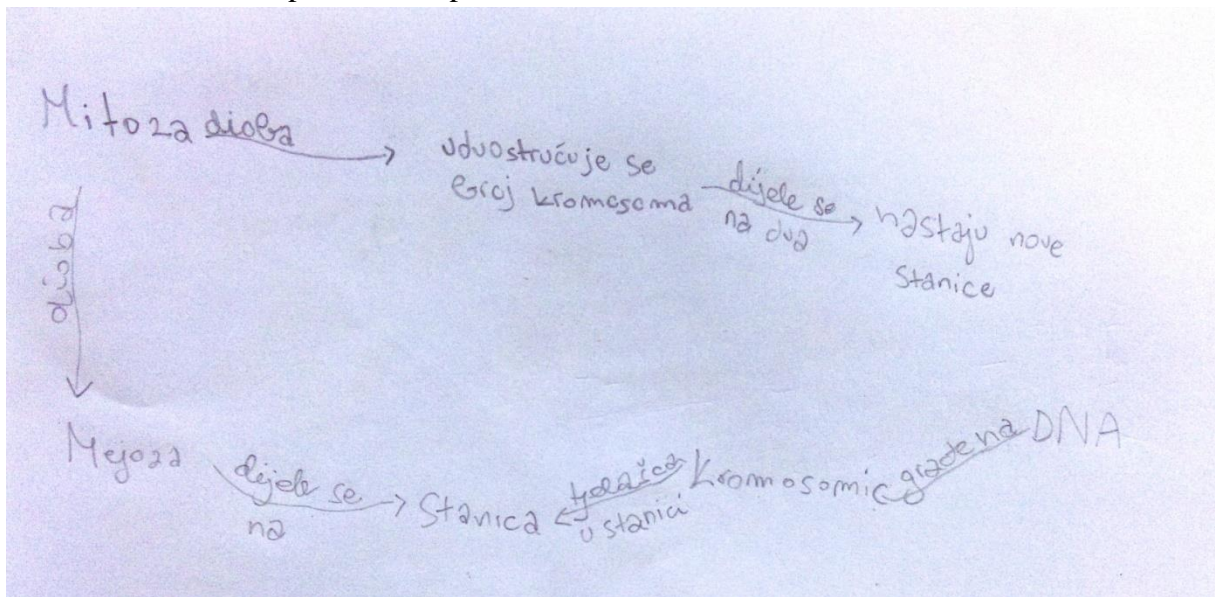 Mitoza dioba
udvostručuje se
broj kromosoma
dijele se
na dva
nastaju nove
stanice
dioba
Mejoza
dijele se
na
Stanica
tjelašca
u stanici
Kromosomi
građena
DNA